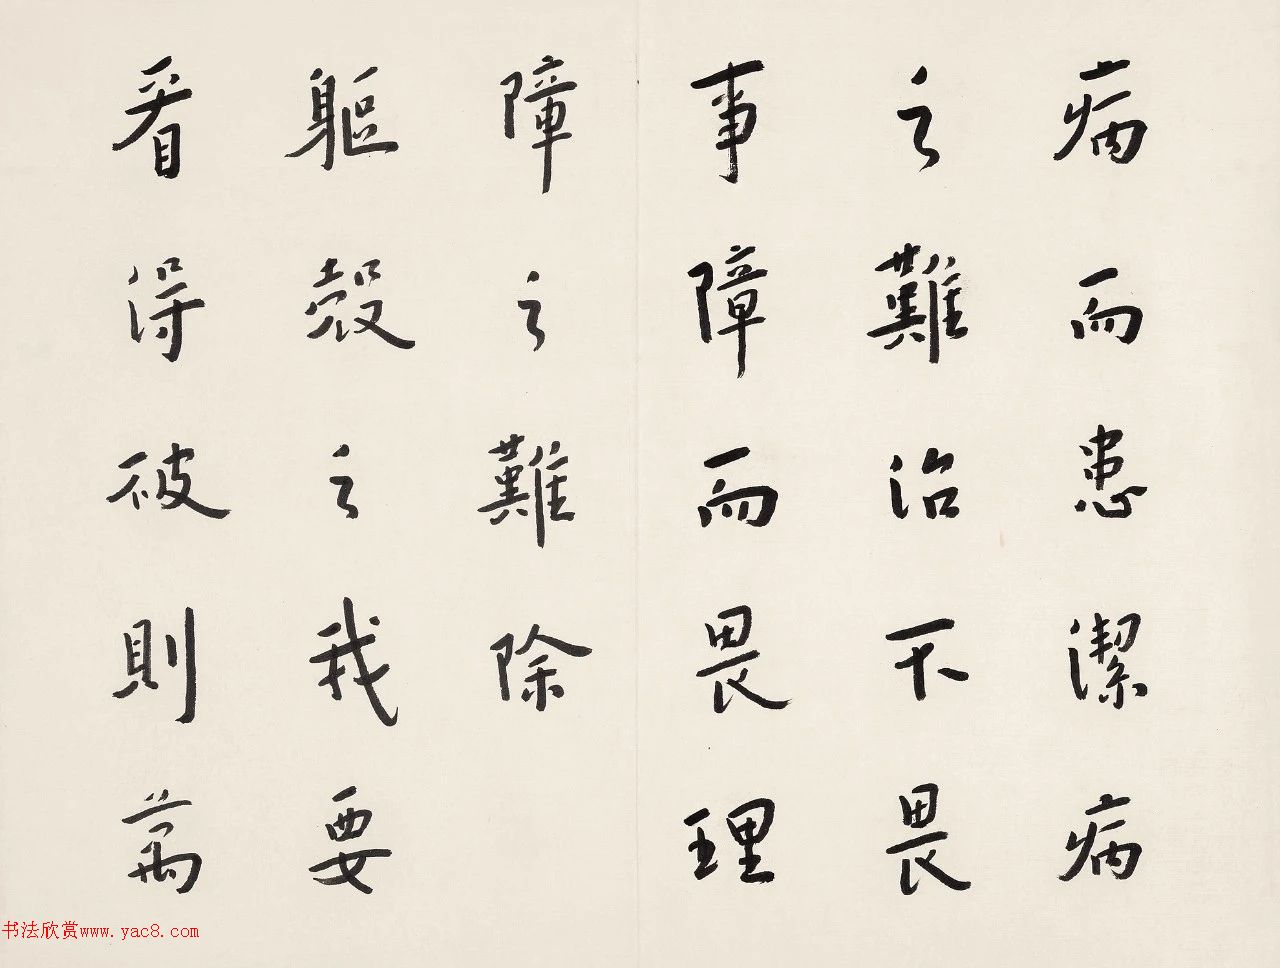 病而患潔病
之難治不畏
事障而畏理
障之難除
軀殼之我要
看得破則萬
书法欣赏www.yac8.com